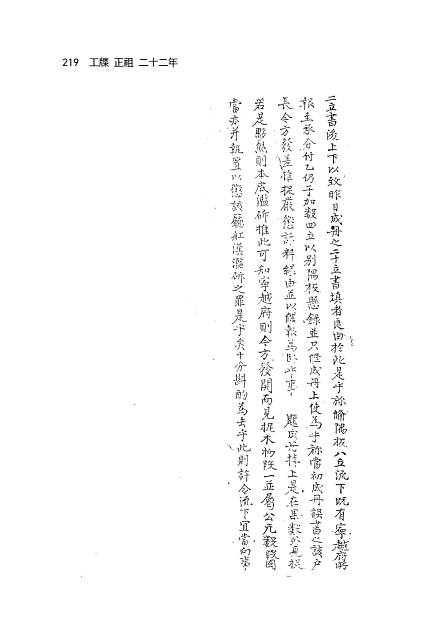 219 工牒 正祖 二十二年
二立書陵上下以致昨日成冊之二十立書填者良由於此是乎旀隅隅板八立流下旣有寧越府所
報主承分付乙仍于加數四立以別隅板懸錄並只修成冊上使爲乎旀當初成冊誤書之該戶
長令方發差推捉嚴懲計料緣由並以牒報爲臥乎事 題成冊捧上是在果數外見捉
若是夥然則本底濫斫推此可知寧越府則令方發關而見捉木物段一並屬公元數段因
當亦并執置以懲該廳紅漢濫斫之罪是乎矣十分斟酌爲去乎此則許令流下宜當向事